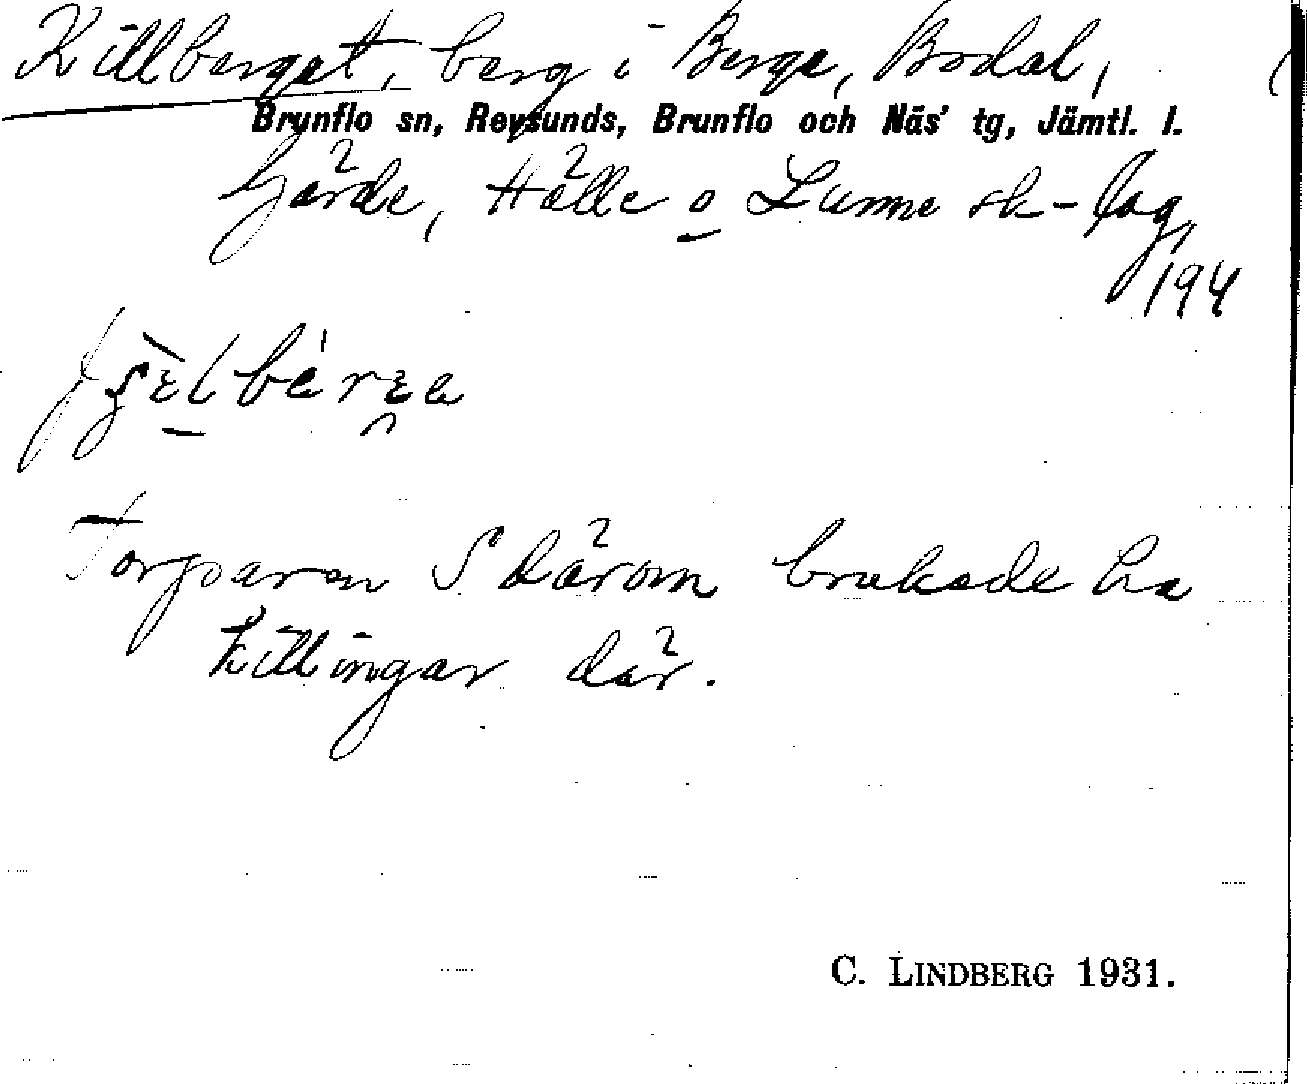 Killberget, berg i Berge, Bodal,
Brunflo sn, Revsunds, Brunflo och Näs' tg, Jämtl. l.
Gärde, Hälle o Lunne sk-lag,
194
Torparen S därom brukade ha
killingar där.
C. LINDBERG 1931.